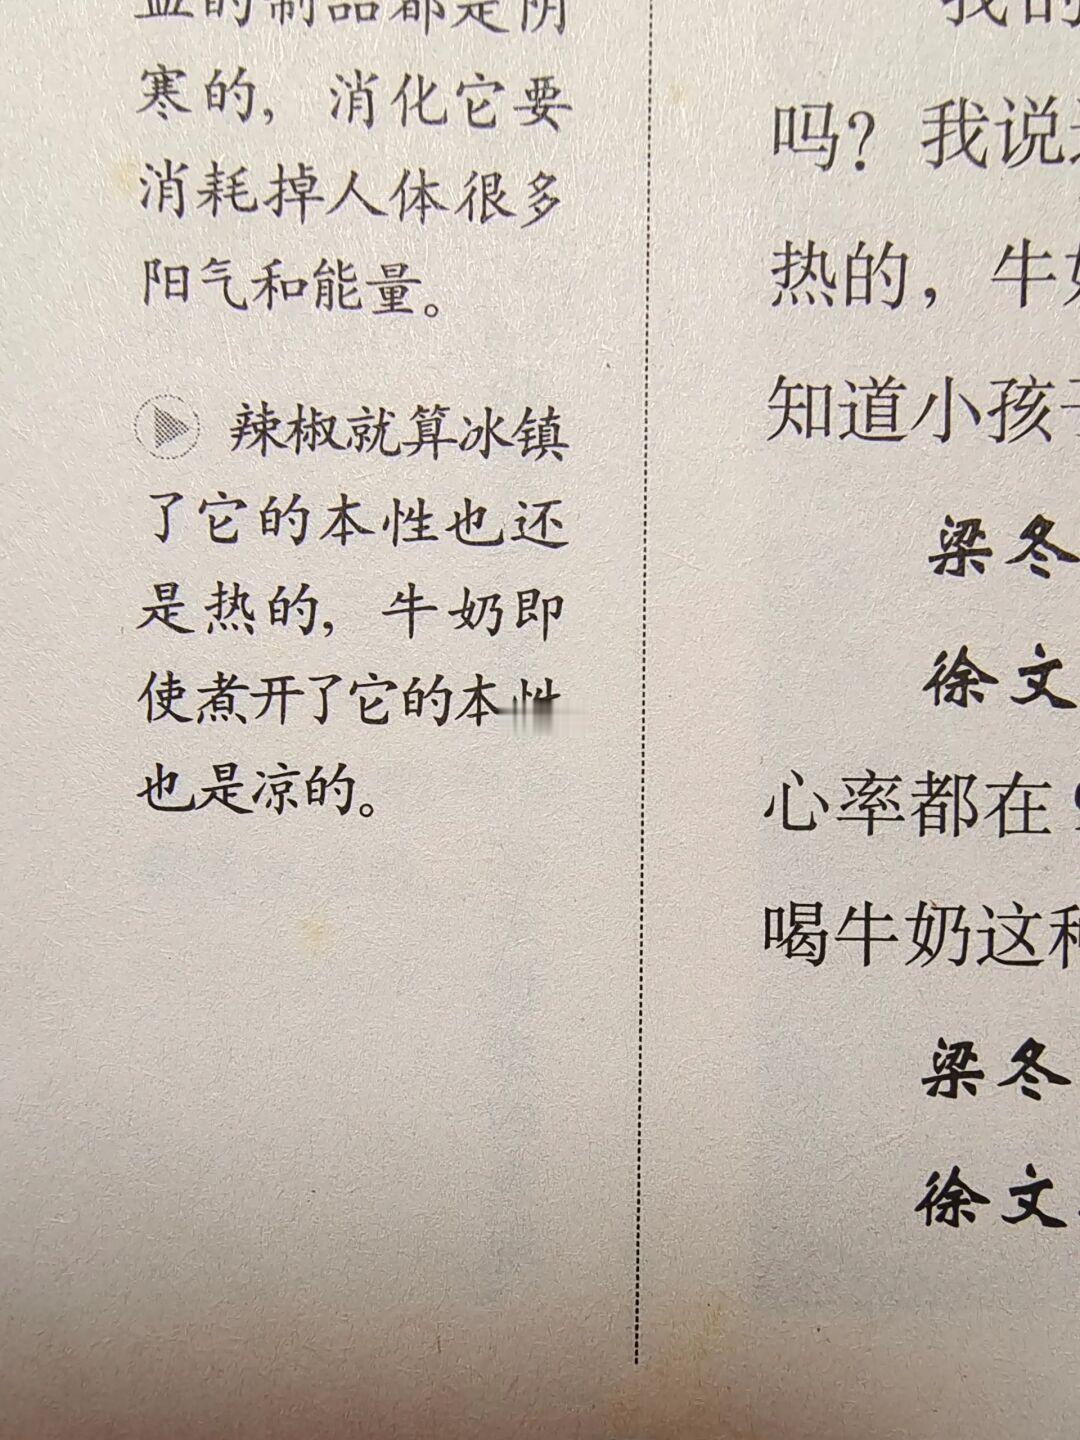 血的制品都是阴
寒的，消化它要
消耗掉人体很多
阳气和能量。
辣椒就算冰镇
了它的本性也还
是热的，牛奶即
使煮开了它的本
也是凉的。
我的
吗？我说
热的，牛
知道小孩
梁冬
徐文
心率都在
喝牛奶这
梁冬
徐文